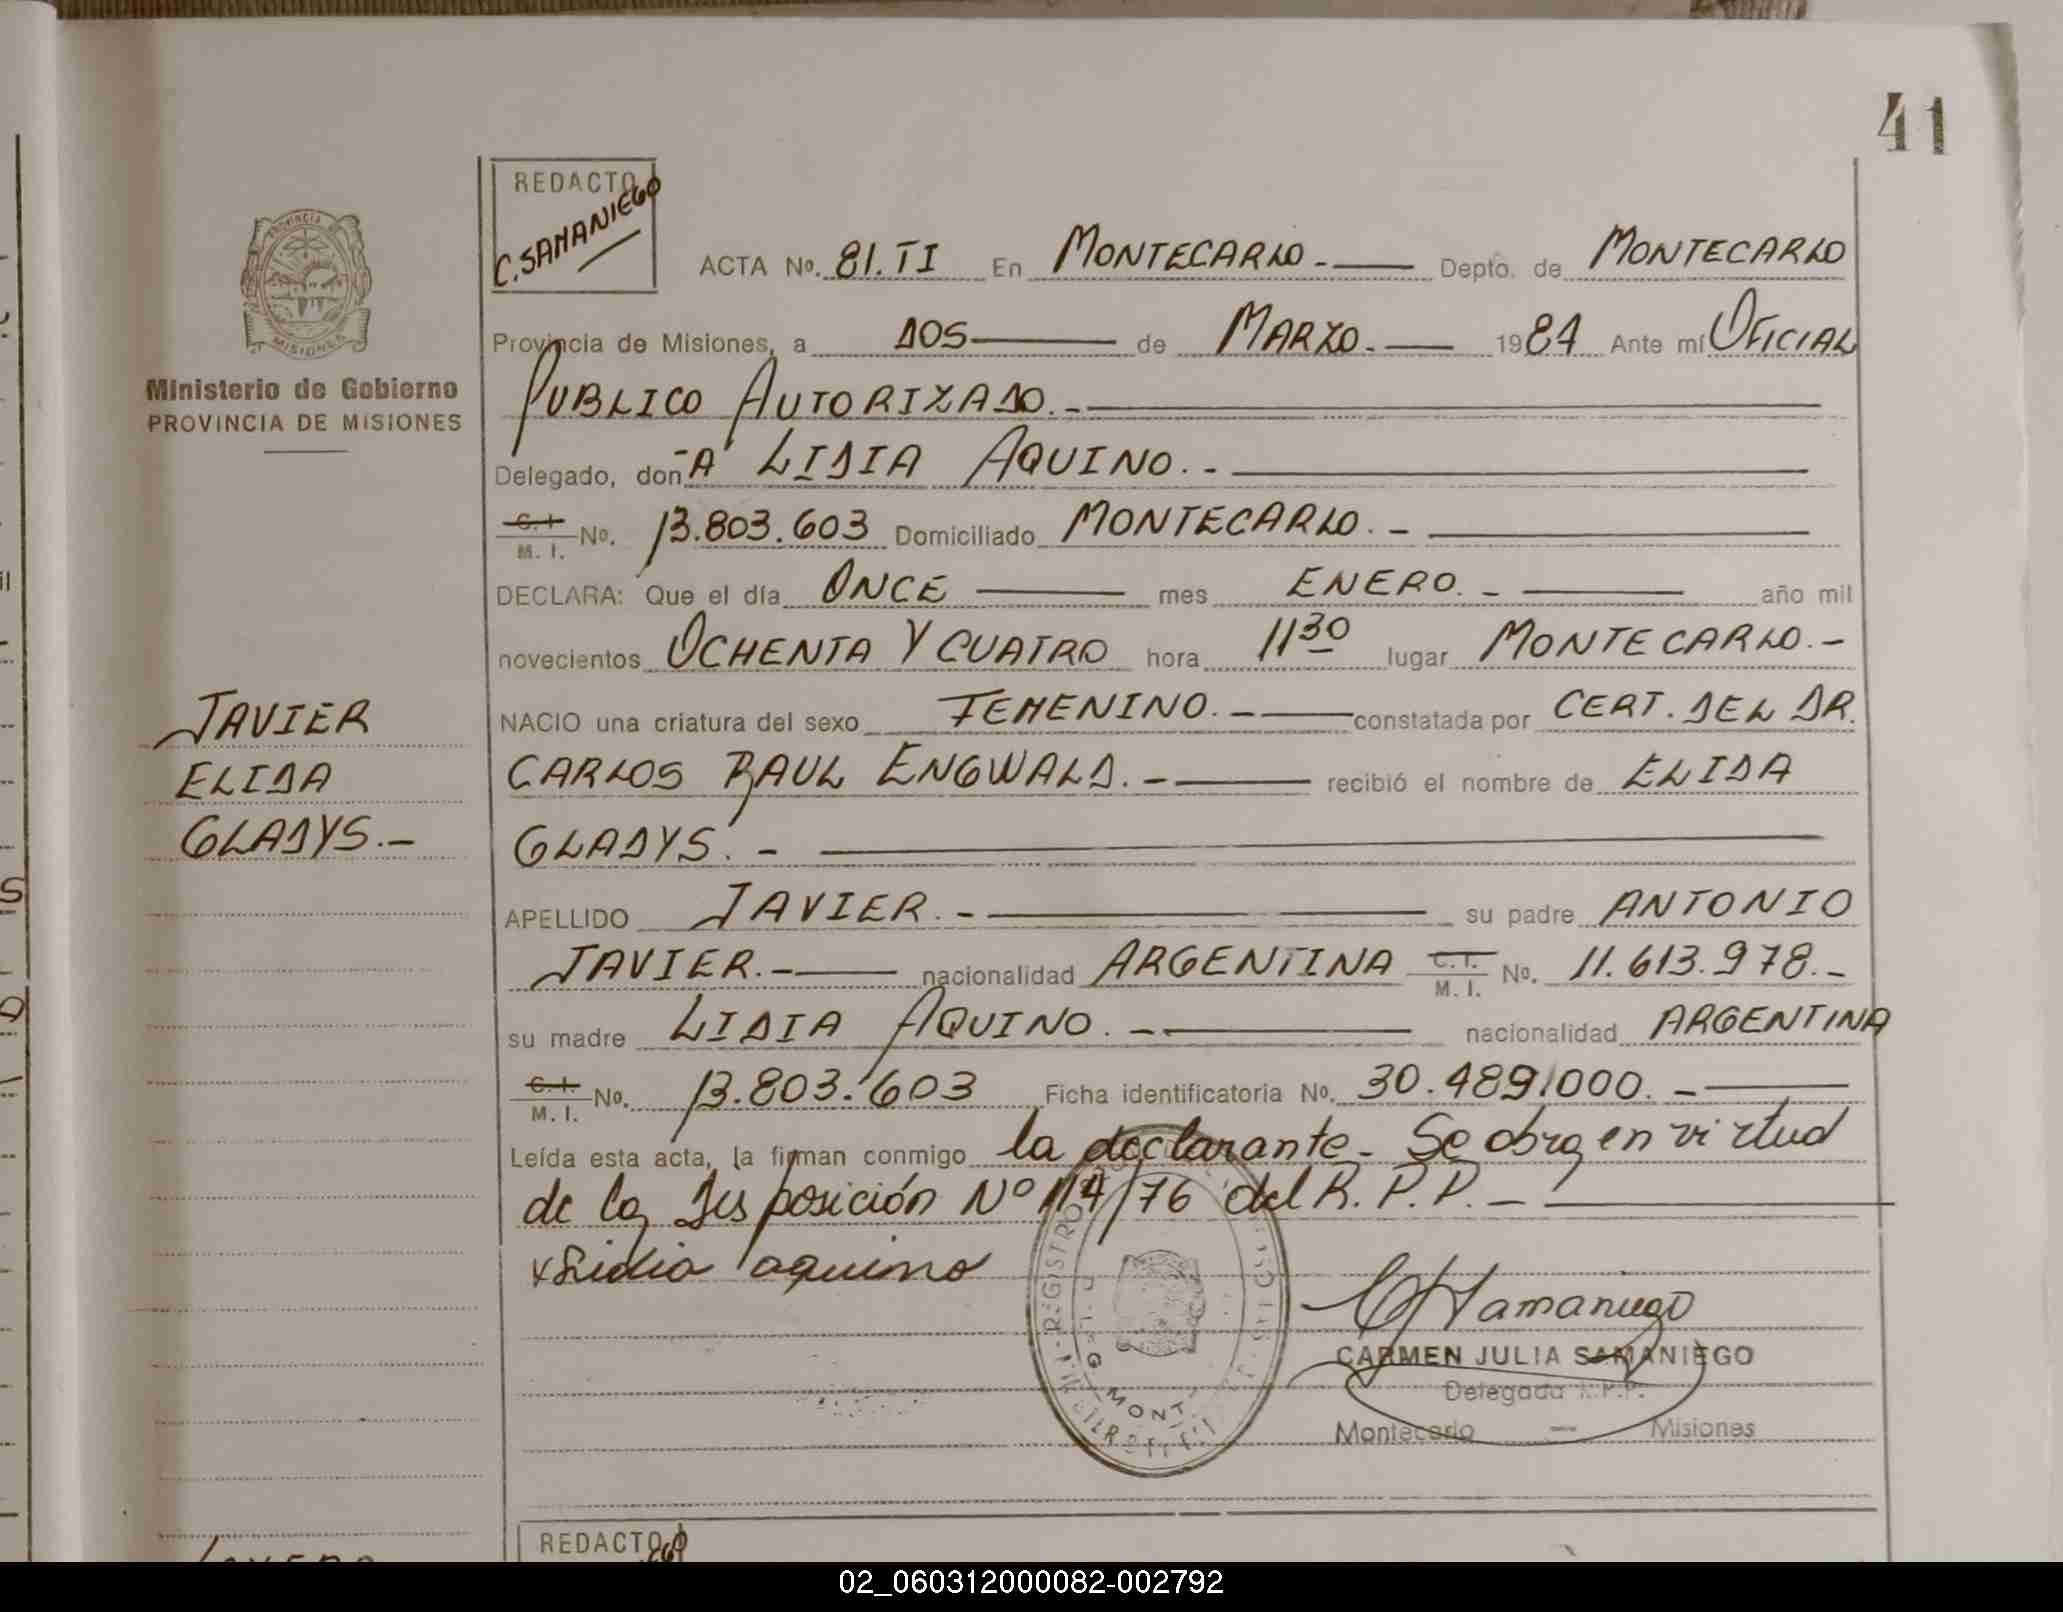 41
REDACTO
C. SAMANIEGO
ACTA No. 81. TI En MONTECARLO.- Depto. de MONTECARLO
Provincia de Misiones, a DOS de MARZO.- 1984 Ante mí OFICIAL
PUBLICO AUTORIZADO.-
Delegado, don̄A LIDIA AQUINO.-
C. I. M. I. No. 13.803.603 Domiciliado MONTECARLO.-
DECLARA: Que el día ONCE mes ENERO.- año mil
novecientos OCHENTA Y CUATRO hora 11 30 lugar MONTECARLO.-
NACIO una criatura del sexo FEMENINO.- constatada por CERT. DEL DR.
CARLOS RAUL ENGWALD.- recibió el nombre de ELIDA
GLADYS.-
APELLIDO JAVIER.- su padre ANTONIO
JAVIER.- nacionalidad ARGENTINA C. I. M. I. No. 11.613.978.-
su madre LIDIA AQUINO.- nacionalidad ARGENTINA
C. I. M. I. No. 13.803.603 Ficha identificatoria No. 30.489.000.-
Leída esta acta, la firman conmigo la declarante. Se obra en virtud
de la Disposición Nº 114/76 del R. P. P.-
x Lidia aquino
CSamaniego
CARMEN JULIA SAMANIEGO
Delegada R.P.P.
Montecarlo — Misiones
REGISTRO
DELEG. MONT
PROVINCIA
MISIONES
Ministerio de Gobierno
PROVINCIA DE MISIONES
JAVIER
ELIDA
GLADYS.-
REDACTO
02_060312000082-002792